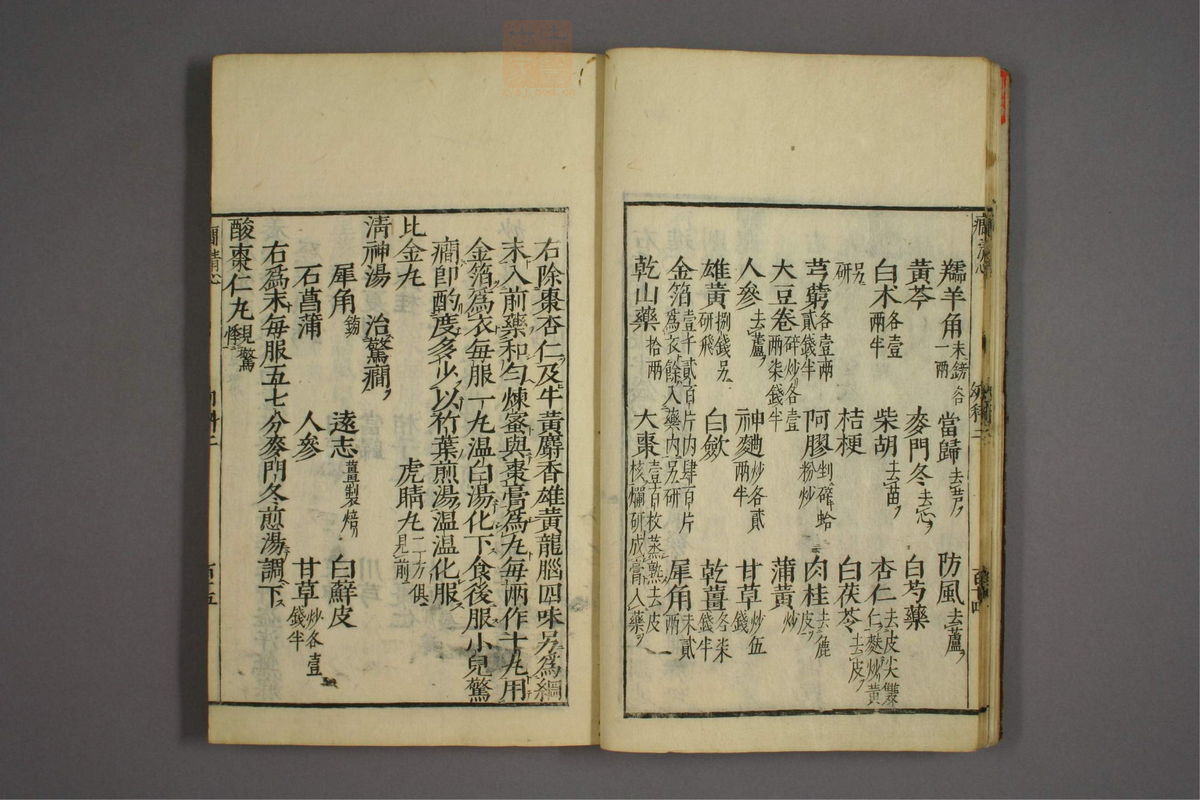 羚羊角末鎊各一兩　當歸去芦　防風去蘆
黃芩　麥門冬去心　白芍藥
白朮各壹兩半　柴胡去苗　杏仁去皮尖雙仁麩炒黃
另研　桔梗　白茯苓去皮
芎藭各壹兩貳錢半　阿膠剉碎蛤粉炒　肉桂去麁皮
大豆卷碎炒各壹兩柒錢半　蒲黃炒
人參去蘆　神麯炒各貳兩半　甘草炒伍錢
雄黃捌錢另研飛　白斂　乾薑各柒錢半
金箔壹千貳百片內肆百片為衣餘入藥內另研　犀角末貳兩
乾山藥拾兩　大棗壹百枚蒸熟去皮核爛研成膏入藥
右除棗杏仁及牛黃麝香雄黃龍腦四味另為細
末入前藥和勻煉蜜與棗膏為丸每兩作十丸用
金箔爲衣每服一丸溫白湯化下食後服小兒驚
癎卽酌度多少以竹葉煎湯溫溫化服
比金丸　虎睛丸二方俱見前
清神湯　治驚癎
犀角鎊　遠志薑製焙　白蘚皮
石菖蒲　人參　甘草炒各壹錢半
右爲末每服五七分麥門冬煎湯調下
酸棗仁丸見驚悸